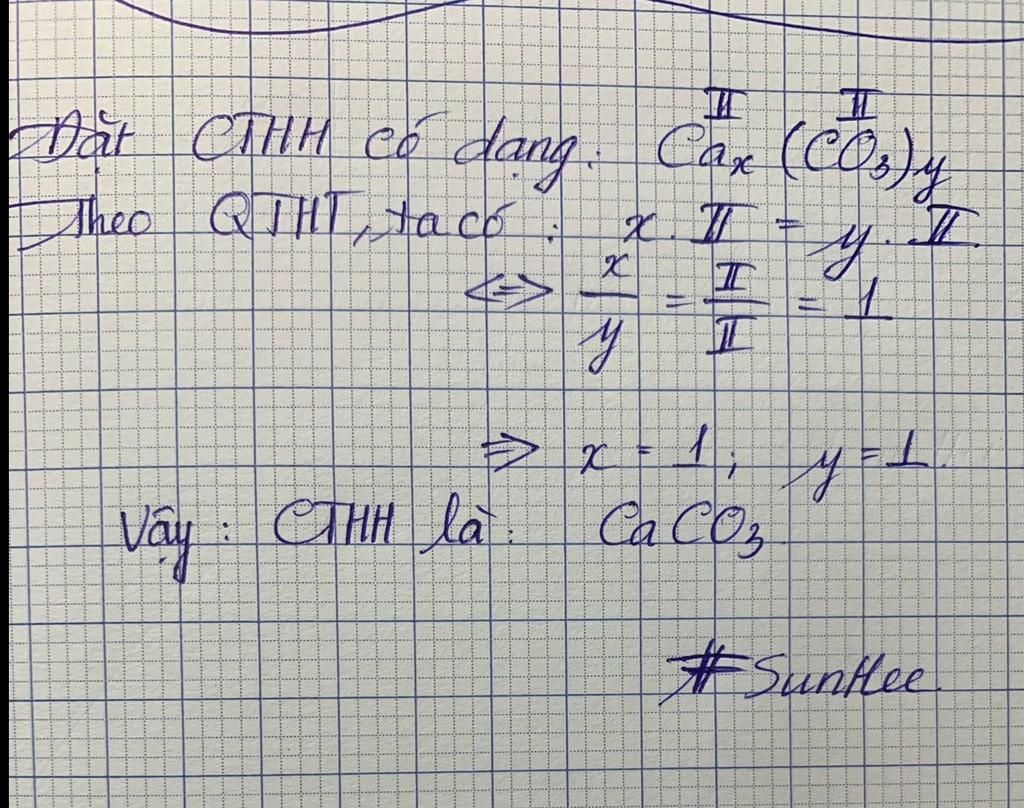 II II
Đặt CTHH có dạng: Caₓ (CO₃)y
Theo QTHT, ta có: x. II = y. II.
<=> x/y = II/II = 1
=> x = 1; y = 1.
Vậy: CTHH là: CaCO₃.
#SunHee.